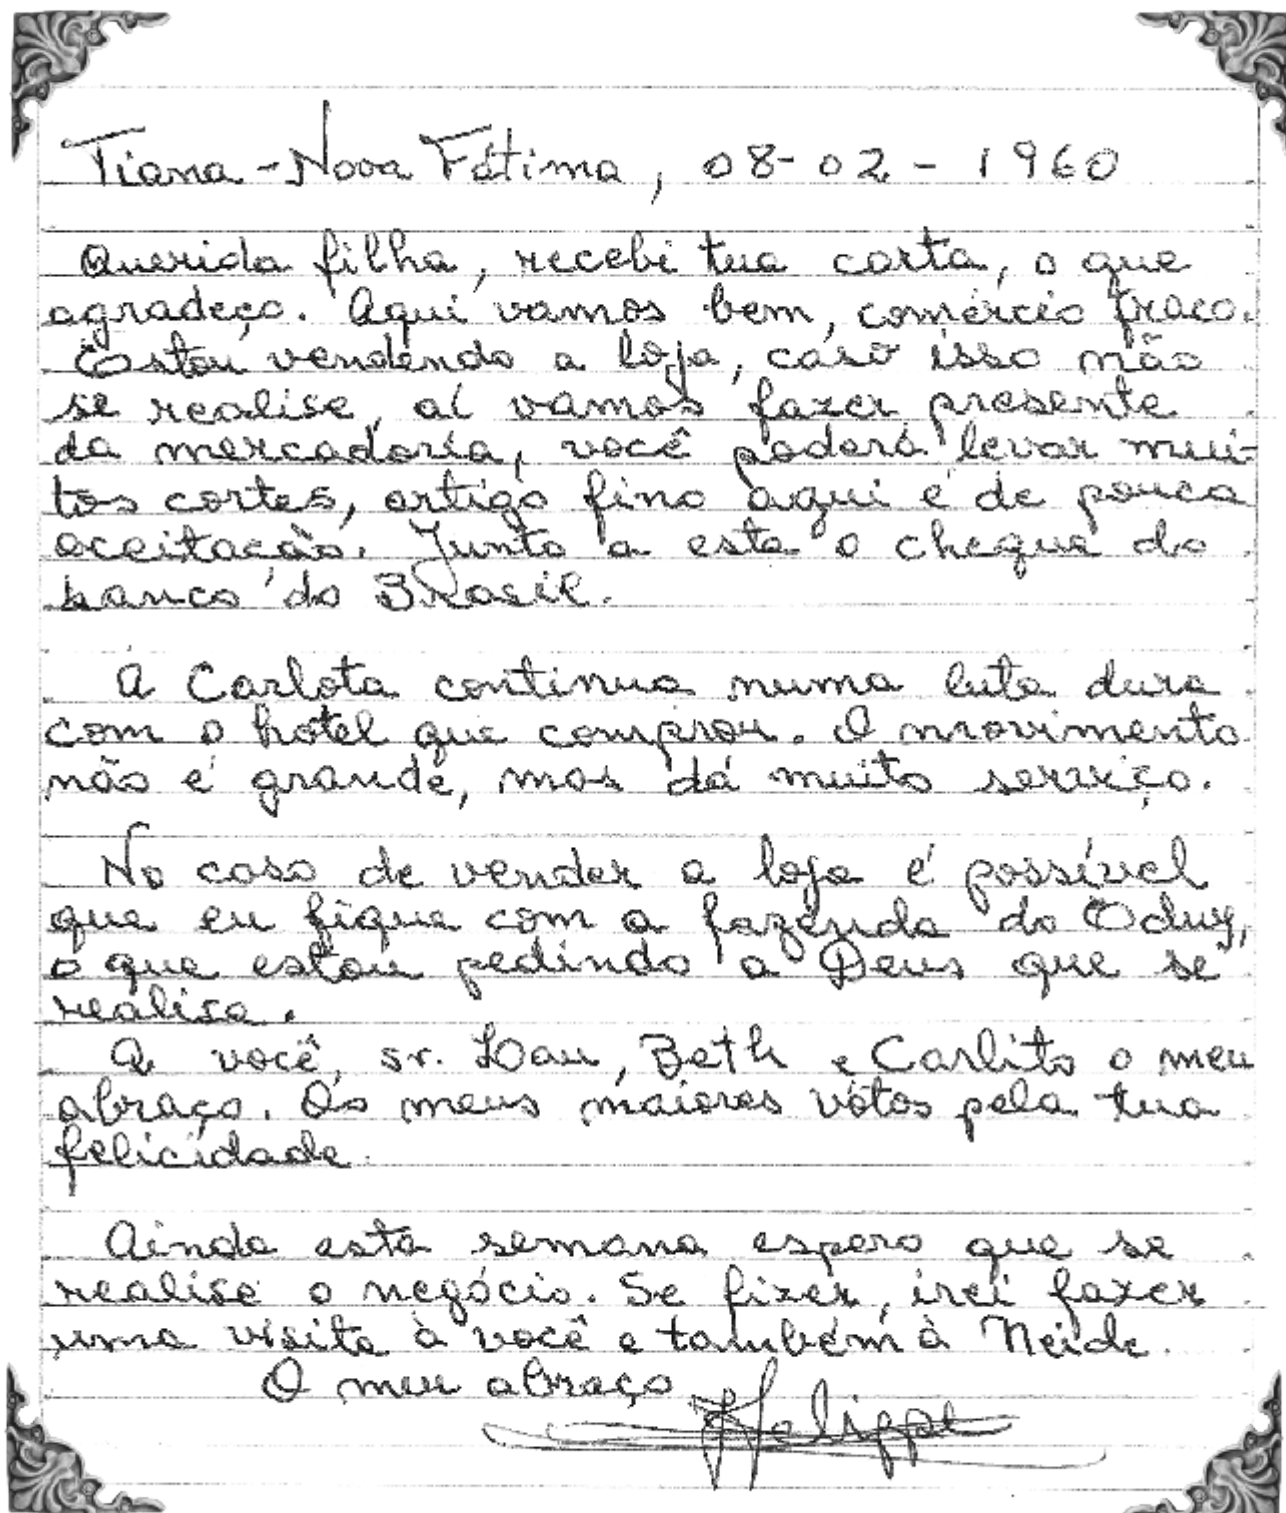 Tiana - Nova Fátima, 08-02-1960
Querida filha, recebi tua carta, o que
agradeço. Aqui vamos bem, comércio fraco.
Estou vendendo a loja, caso isso não
se realise, aí vamos fazer presente
da mercadoria, você poderá levar mui-
tos cortes, artigo fino aqui é de pouca
aceitação. Junto a esta o cheque do
banco do Brasil.
A Carlota continua numa luta dura
com o hotel que comprou. O movimento
não é grande, mas dá muito serviço.
No caso de vender a loja é possível
que eu fique com a fazenda do
o que estou pedindo a Deus que se
realise.
A você, sr. Lau, Beth e Carlito o meu
abraço. Os meus maiores votos pela tua
felicidade.
Ainda esta semana espero que se
realise o negócio. Se fizer, irei fazer
uma visita à você e também à Neide.
O meu abraço
Felippe